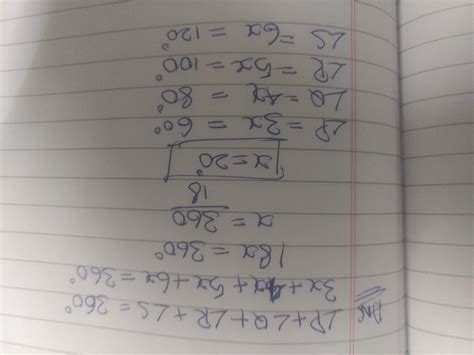 Ans ∠P+∠Q+∠R+∠S = 360°
3x+4x+5x+6x = 360°
18x = 360°
x = 360/18
x = 20°
∠P = 3x = 60°
∠Q = 4x = 80°
∠R = 5x = 100°
∠S = 6x = 120°